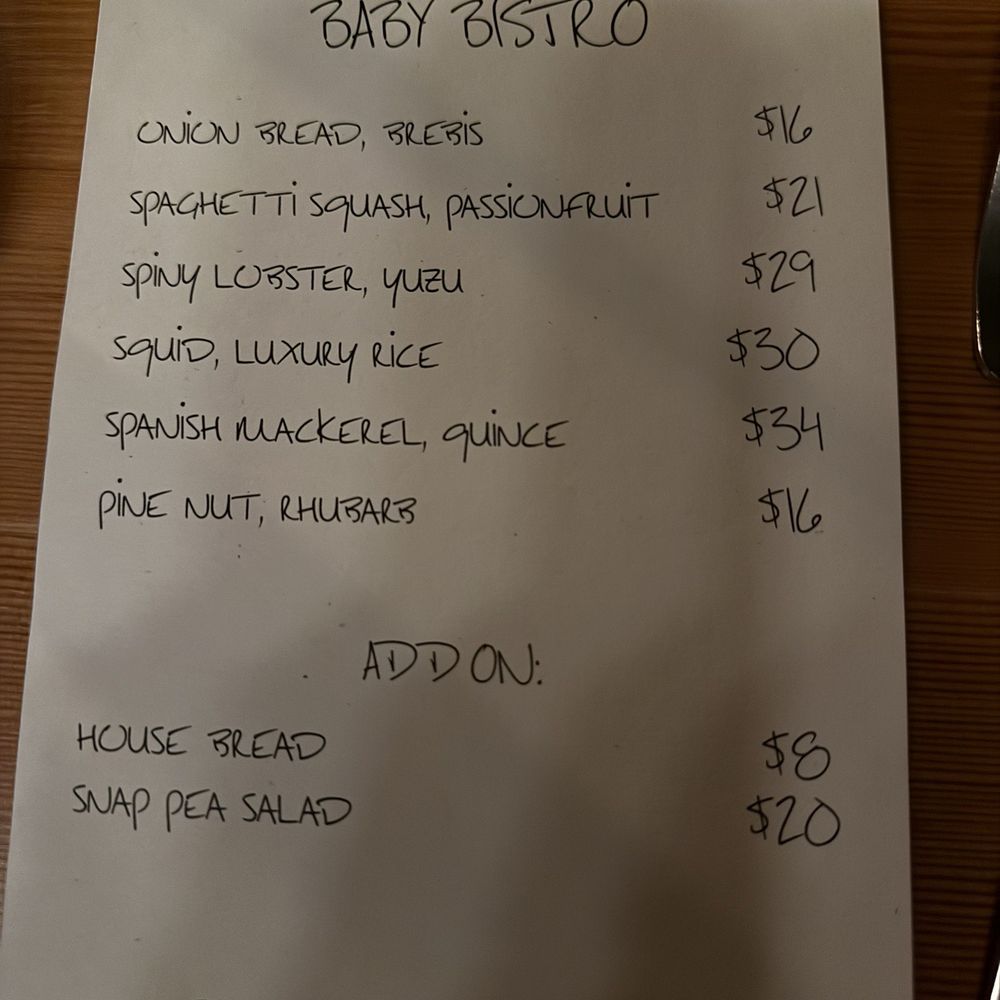 BABY BISTRO
ONION BREAD, BREBIS $16
SPAGHETTI SQUASH, PASSIONFRUIT $21
SPINY LOBSTER, YUZU $29
SQUID, LUXURY RICE $30
SPANISH MACKEREL, QUINCE $34
PINE NUT, RHUBARB $16
ADD ON:
HOUSE BREAD $8
SNAP PEA SALAD $20